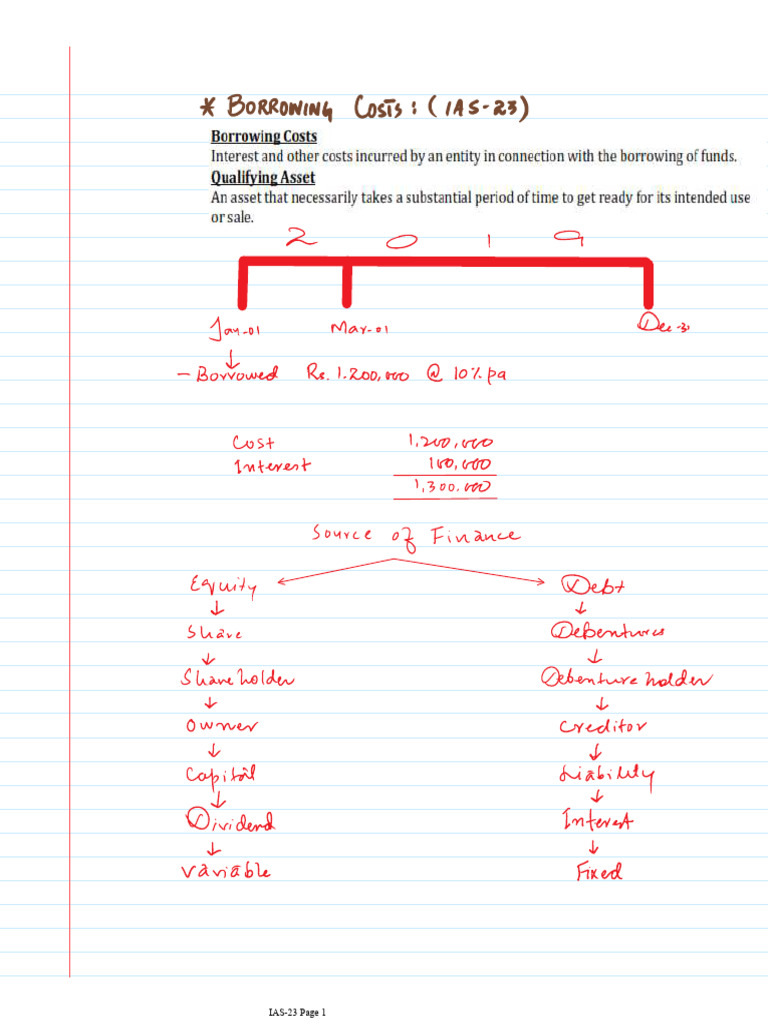 * BORROWING COSTS: (IAS-23)
Borrowing Costs
Interest and other costs incurred by an entity in connection with the borrowing of funds.
Qualifying Asset
An asset that necessarily takes a substantial period of time to get ready for its intended use
or sale.
2 0 1 9
Jan-01 Mar-01 Dec-31
- Borrowed Rs. 1.200,000 @ 10% pa
Cost 1,200,000
Interest 100,000
1,300.000
Source of Finance
Equity Debt
Share Debentures
Shareholder Debenture holder
Owner Creditor
Capital Liability
Dividend Interest
Variable Fixed
IAS-23 Page 1